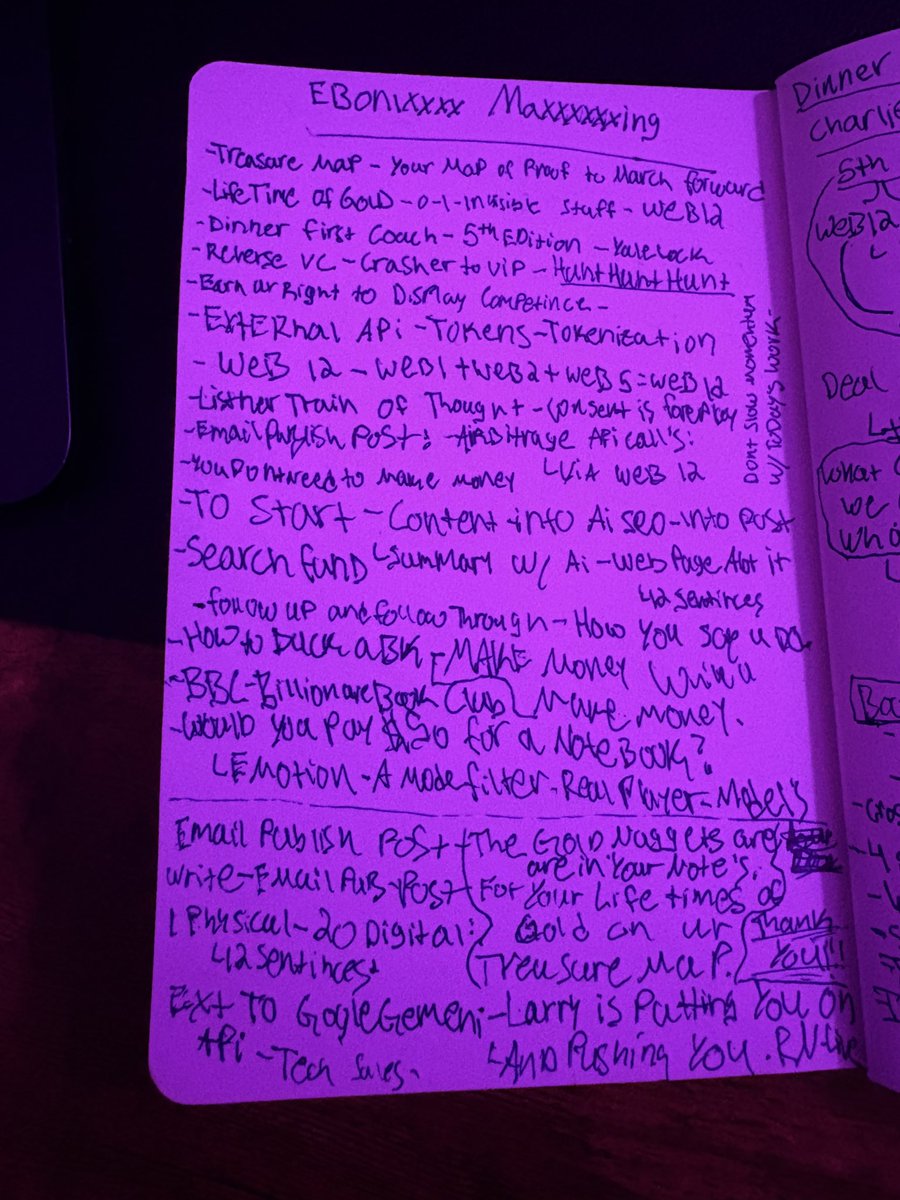 EBonixxxx Maxxxxxxing
-Treasure Map - Your Map of Proof to March forward
-LifeTime of Gold - 0-1-Invisible Stuff - WEB12
-Dinner first Coach - 5th EDition - Yale Lock
-Reverse VC - Crasher to ViP - Hunt Hunt Hunt
-Earn ur Right to Display Competince -
-External APi - Tokens - Tokenization
- WEB 12 - WEB1 + WEB2 + WEB 5 = WEB 12
Train Of Thought - Consent is forePlay
-Email Publish Post: - Arbitrage APi call's:
-You Dont need to make money
└ViA WEB 12
Dont Slow momentum
w/ ToDay's Work-
-To Start - Content into Ai seo - into Post
-Search fund
└Summary w/ Ai - web Page
42 Sentinces
-follow up and follow Through - How You
-How to Duck a BK
MAKE Money
-BBC - Billionare Book Club
Make money.
-Would You Pay $$20 for a NoteBook?
└Emotion - A Mode filter - Real Player - Model's
Email Publish Post
Write - Email Pub - Post
1 Physical - 20 Digital:
42 Sentinces
The Gold Nuggets are
are in Your Note's.
For Your Life times of
Gold on ur
Treasure Map.
Thank
You!!
Ext To Gogle Gemeni
APi - Tech Sales.
-Larry is Putting You On
└And Pushing You.
Dinner
Charlie
5th
WEB12
Deal
What
we